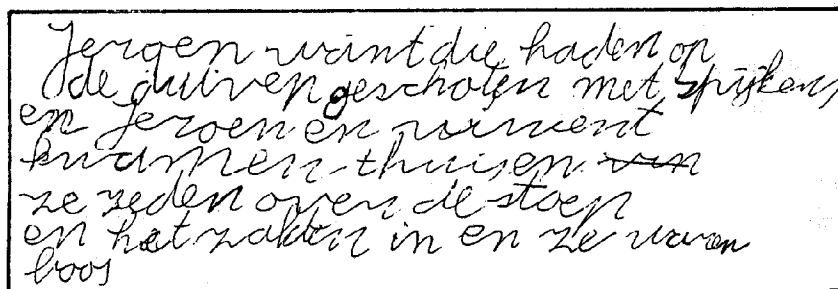 Jeroen want die haden op
de duiven geschoten met spijkers,
en Jeroen en
kwamen thuis en
ze zeden over de stoep
en het zakten in en ze waren
boos